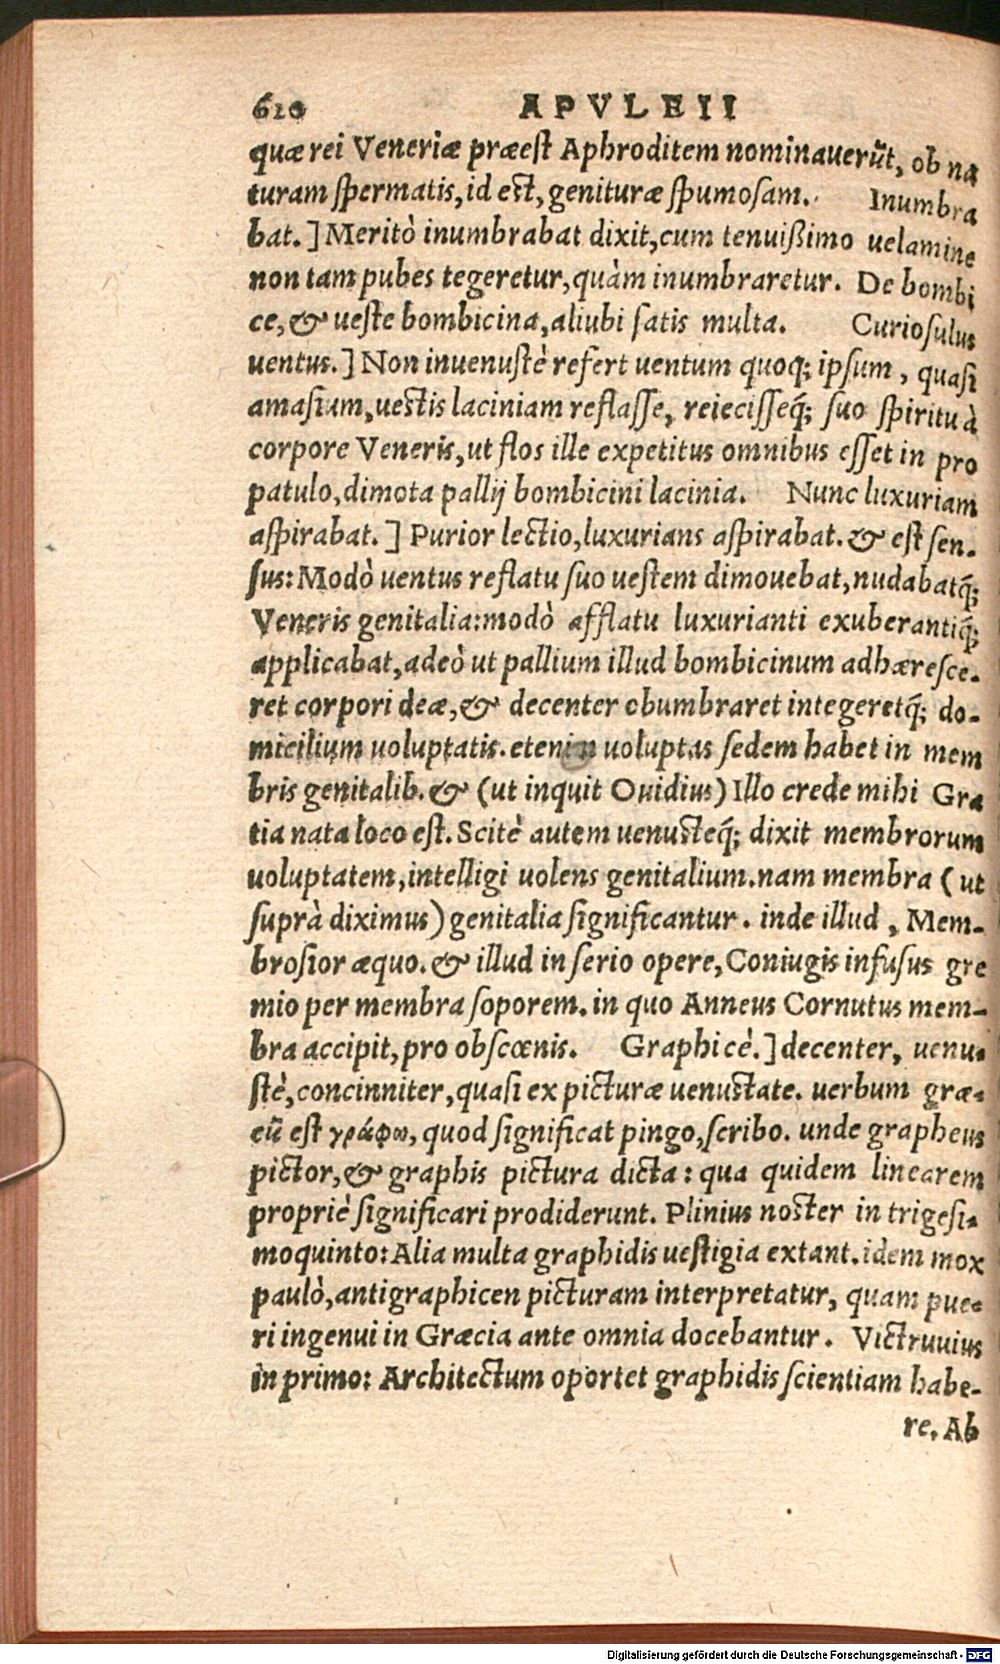 610 APVLEII
quæ rei Veneriæ præest Aphroditem nominauerũt, ob na
turam spermatis, id est, genituræ spumosam. Inumbra
bat.] Meritò inumbrabat dixit, cum tenuißimo uelamine
non tam pubes tegeretur, quàm inumbraretur. De bombi
ce, & ueste bombicina, aliubi satis multa. Curiosulus
uentus.] Non inuenustè refert uentum quoq; ipsum, quasi
amasium, uestis laciniam reflasse, reiecisseq́; suo spiritu à
corpore Veneris, ut flos ille expetitus omnibus esset in pro
patulo, dimota pallij bombicini lacinia. Nunc luxuriam
aspirabat.] Purior lectio, luxurians aspirabat. & est sen-
sus: Modò uentus reflatu suo uestem dimouebat, nudabatq́;
Veneris genitalia: modò afflatu luxurianti exuberantiq́;
applicabat, adeò ut pallium illud bombicinum adhæresce-
ret corpori deæ, & decenter obumbraret integeretq́; do-
micilium uoluptatis. etenim uoluptas sedem habet in mem
bris genitalib. & (ut inquit Ouidius) Illo crede mihi Gra
tia nata loco est. Scitè autem uenusteq́; dixit membrorum
uoluptatem, intelligi uolens genitalium. nam membra (ut
suprà diximus) genitalia significantur. inde illud, Mem-
brosior æquo. & illud in serio opere, Coniugis infusus gre
mio per membra soporem. in quo Anneus Cornutus mem-
bra accipit, pro obscœnis. Graphicè.] decenter, uenu-
stè, concinniter, quasi ex picturæ uenustate. uerbum græ-
cũ est γράφω, quod significat pingo, scribo. unde grapheus
pictor, & graphis pictura dicta: qua quidem linearem
propriè significari prodiderunt. Plinius noster in trigesi-
moquinto: Alia multa graphidis uestigia extant. idem mox
paulò, antigraphicen picturam interpretatur, quam pue-
ri ingenui in Græcia ante omnia docebantur. Victruuius
in primo: Architectum oportet graphidis scientiam habe-
re. Ab
Digitalisierung gefördert durch die Deutsche Forschungsgemeinschaft - DFG